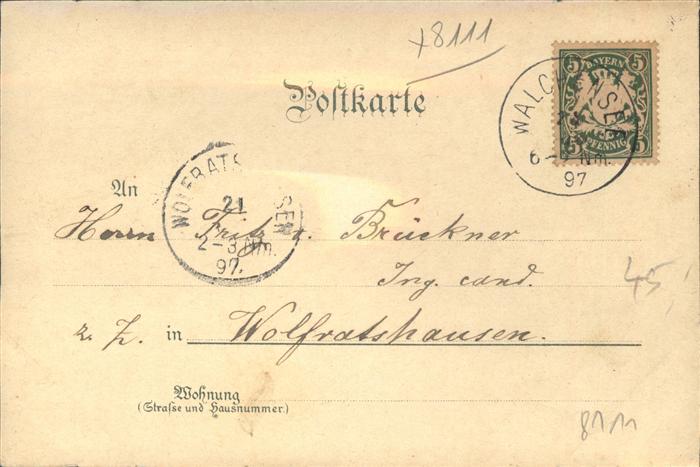 x8111
BAYERN
5 5
5 PFENNIG 5
WALCHENSEE
6-7 Nm.
97
Postkarte
WOLFRATSHAUSEN
21
2-3 Nm.
97.
An
Herrn Fritz v. Brückner
Ing. cand.
45,
z. Z. in Wolfratshausen.
Wohnung
(Straſse und Hausnummer.)
8111